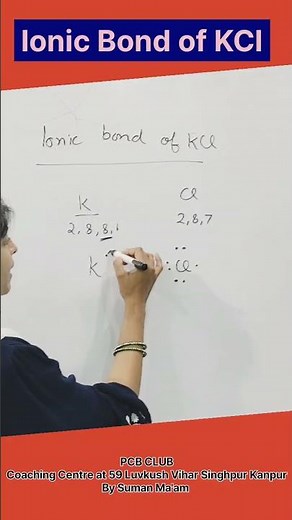 Ionic Bond of KCl
Ionic bond of KCl
K Cl
2, 8, 8, 1 2, 8, 7
K Cl
PCB CLUB
Coaching Centre at 59 Luvkush Vihar Singhpur Kanpur
By Suman Ma'am